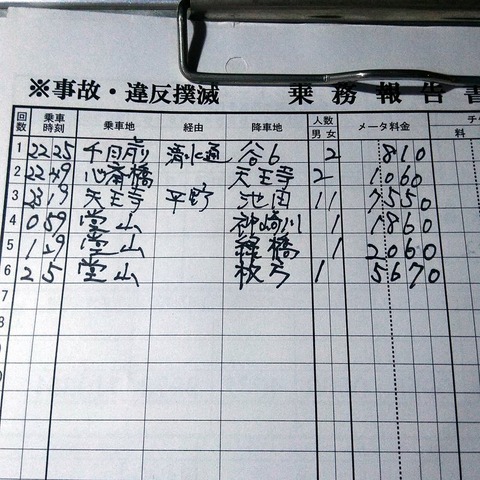 ※事故・違反撲滅 乗務報告書
回数 乗車時刻 乗車地 経由 降車地 人数 男 女 メータ料金 料
1 2225 千日前 清水通 谷6 2 810
2 2249 心斎橋 天王寺 2 1060
3 2319 天王寺 平野 池田 1 1 7550
4 059 堂山 神崎川 1 1860
5 129 堂山 緑橋 1 2060
6 25 堂山 枚方 1 5670
7
8